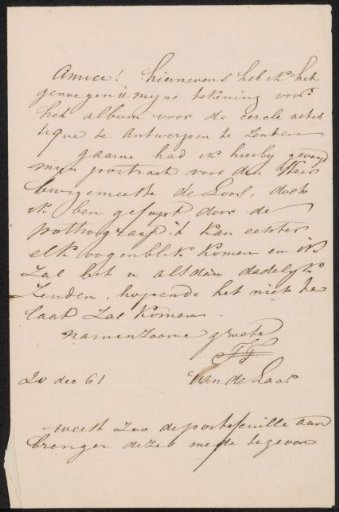 Amice! hiernevens heb ik het
genoegen U mijne tekening voor
het album voor de cercle artis
tique de Antwerpen te zenden
gaarne had ik hierby gevoegd
mijn portrait voor den Heer
burgemeester de Loos, doch
ik ben gefopt door de
photograaf 't kan echter
elk oogenblik komen en ik
zal het u alsdan dadelyk
zenden, hopende het niet te
laat zal komen.
na minzaame groete
van de Laar
20 dec 61
weest zoo de portefeuille aan
brenger dezes mede te geven